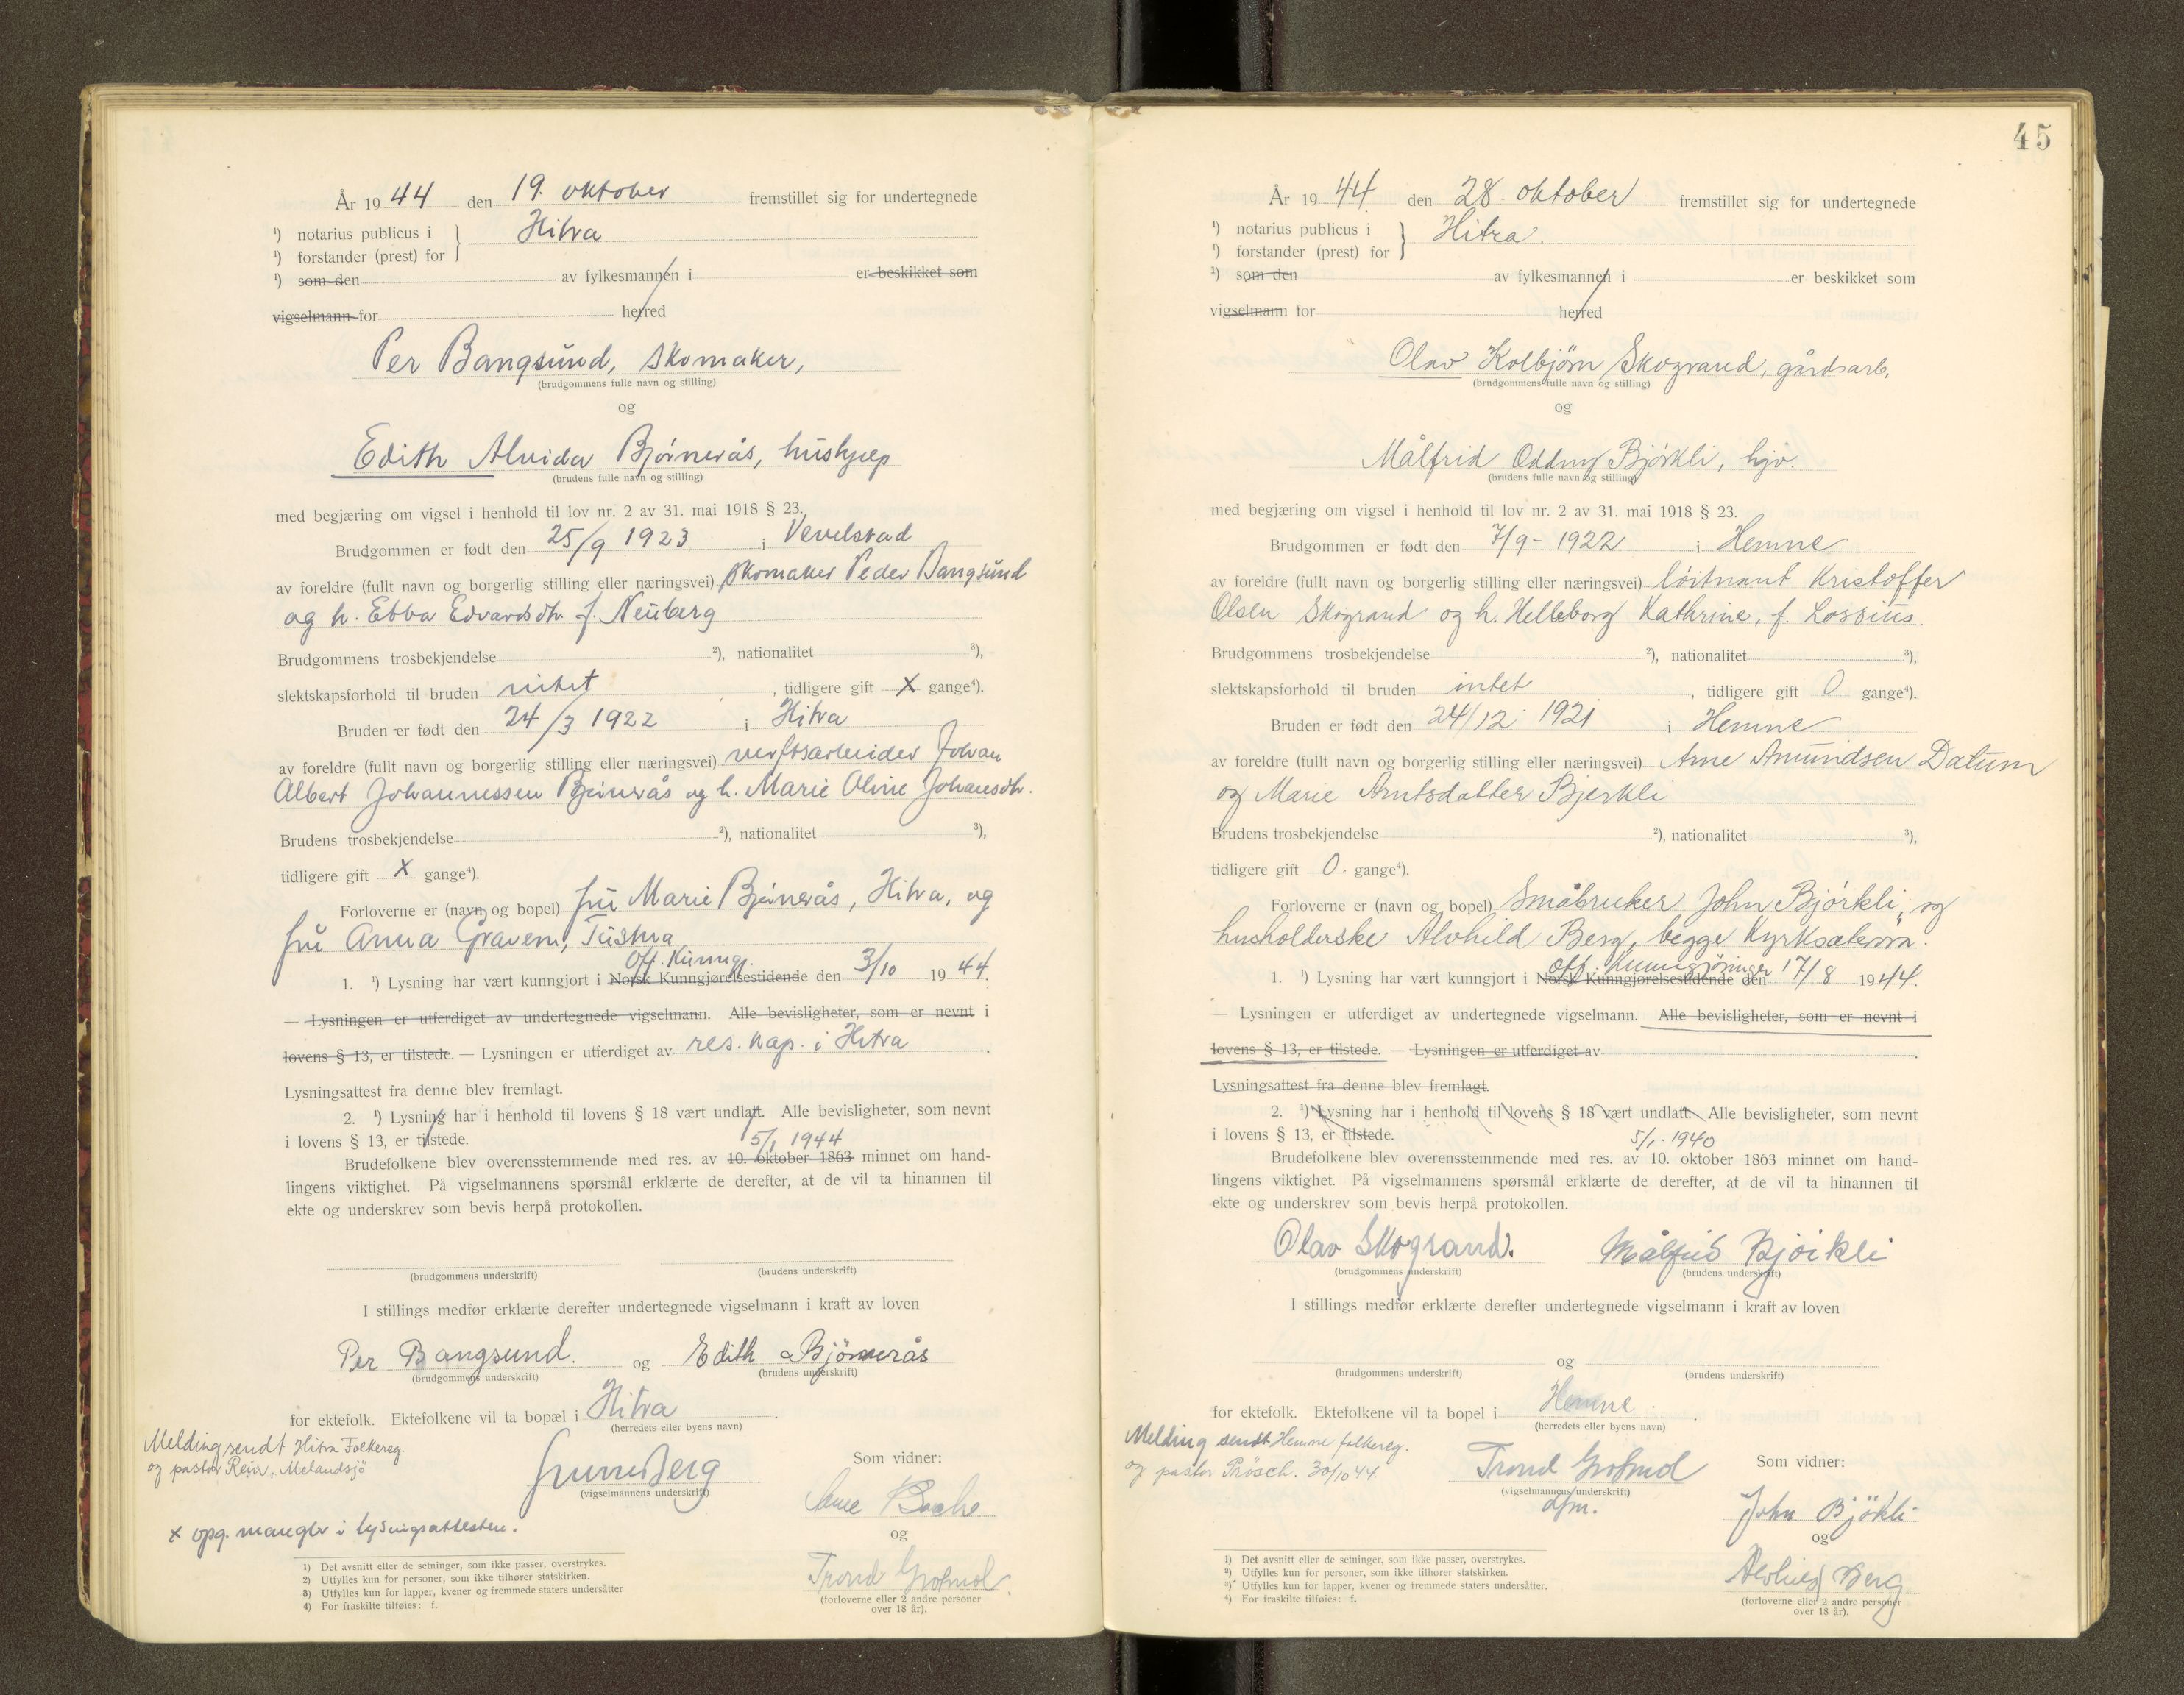 År 1944 den 19. oktober fremstillet sig for undertegnede
¹) notarius publicus i } Hitra
¹) forstander (prest) for
¹) som den av fylkesmannen i er beskikket som
vigselmann for herred
Per Bangsund, skomaker,
(brudgommens fulle navn og stilling)
og
Edith Alvida Bjørnerås, hushjelp
(brudens fulle navn og stilling)
med begjæring om vigsel i henhold til lov nr. 2 av 31. mai 1918 § 23.
Brudgommen er født den 25/9 1923 i Vevelstad
av foreldre (fullt navn og borgerlig stilling eller næringsvei) skomaker Peder Bangsund
og h. Ebba Edvardsdtr. f. Neuberg
Brudgommens trosbekjendelse ²), nationalitet ³),
slektskapsforhold til bruden intet, tidligere gift X gange⁴).
Bruden er født den 24/3 1922 i Hitra
av foreldre (fullt navn og borgerlig stilling eller næringsvei) verftsarbeider Johan
Albert Johannessen Bjørnerås og h. Marie Oline Johansdtr.
Brudens trosbekjendelse ²), nationalitet ³),
tidligere gift X gange⁴).
Forloverne er (navn og bopel) fru Marie Bjørnerås, Hitra, og
fru Anna Gravem, Tustna
Off. Kunngj.
1. ¹) Lysning har vært kunngjort i Norsk Kunngjørelsestidende den 3/10 1944.
— Lysningen er utferdiget av undertegnede vigselmann. Alle bevisligheter, som er nevnt i
lovens § 13, er tilstede. — Lysningen er utferdiget av res. kap. i Hitra.
Lysningsattest fra denne blev fremlagt.
2. ¹) Lysning har i henhold til lovens § 18 vært undlatt. Alle bevisligheter, som nevnt
i lovens § 13, er tilstede. 5/1 1944
Brudefolkene blev overensstemmende med res. av 10. oktober 1863 minnet om hand-
lingens viktighet. På vigselmannens spørsmål erklærte de derefter, at de vil ta hinannen til
ekte og underskrev som bevis herpå protokollen.
(brudgommens underskrift) (brudens underskrift)
I stillings medfør erklærte derefter undertegnede vigselmann i kraft av loven
Per Bangsund. og Edith Bjørnerås
(brudgommens underskrift) (brudens underskrift)
for ektefolk. Ektefolkene vil ta bopæl i Hitra.
(herredets eller byens navn)
Melding sendt Hitra Folkereg.
og pastor Rein, Melandsjö
(vigselmannens underskrift)
Som vidner:
og
x opg. mangler i lysningsattesten.
Trond
(forloverne eller 2 andre personer
over 18 år).
1) Det avsnitt eller de setninger, som ikke passer, overstrykes.
2) Utfylles kun for personer, som ikke tilhører statskirken.
3) Utfylles kun for lapper, kvener og fremmede staters undersåtter
4) For fraskilte tilføies: f.
45
År 1944. den 28. oktober fremstillet sig for undertegnede
¹) notarius publicus i } Hitra.
¹) forstander (prest) for
¹) som den av fylkesmannen i er beskikket som
vigselmann for herred
Olav Kolbjørn Skogrand, gårdsarb.
(brudgommens fulle navn og stilling)
og
Målfrid Oddny Bjørkli, hjv.
(brudens fulle navn og stilling)
med begjæring om vigsel i henhold til lov nr. 2 av 31. mai 1918 § 23.
Brudgommen er født den 7/9-1922 i Hemne
av foreldre (fullt navn og borgerlig stilling eller næringsvei) løitnant Kristoffer
Olsen Skogrand og h. Helleborg Kathrine, f. Lossius.
Brudgommens trosbekjendelse ²), nationalitet ³),
slektskapsforhold til bruden intet, tidligere gift 0 gange⁴).
Bruden er født den 24/12 1921 i Hemne
av foreldre (fullt navn og borgerlig stilling eller næringsvei) Arne Amundsen Dalum
og Marie Arntsdatter Bjerkli
Brudens trosbekjendelse ²), nationalitet ³),
tidligere gift 0. gange⁴).
Forloverne er (navn og bopel) Småbruker John Bjørkli, og
husholderske Alvhild Berg, begge Kyrksæterøra.
off. kunngjøringer
1. ¹) Lysning har vært kunngjort i Norsk Kunngjørelsestidende den 17/8 1944.
— Lysningen er utferdiget av undertegnede vigselmann. Alle bevisligheter, som er nevnt i
lovens § 13, er tilstede. — Lysningen er utferdiget av.
Lysningsattest fra denne blev fremlagt.
2. ¹) Lysning har i henhold til lovens § 18 vært undlatt. Alle bevisligheter, som nevnt
i lovens § 13, er tilstede. 5/1-1940
Brudefolkene blev overensstemmende med res. av 10. oktober 1863 minnet om hand-
lingens viktighet. På vigselmannens spørsmål erklærte de derefter, at de vil ta hinannen til
ekte og underskrev som bevis herpå protokollen.
Olav Skogrand. Målfrid Bjørkli
(brudgommens underskrift) (brudens underskrift)
I stillings medfør erklærte derefter undertegnede vigselmann i kraft av loven
og
(brudgommens underskrift) (brudens underskrift)
for ektefolk. Ektefolkene vil ta bopel i Hemne.
(herredets eller byens navn)
Melding sendt Hemne folkereg.
og pastor Prösch. 30/10 44.
Trond
(vigselmannens underskrift)
dfm.
Som vidner:
John Bjørkli
og
Alvhild Berg
(forloverne eller 2 andre personer
over 18 år).
1) Det avsnitt eller de setninger, som ikke passer, overstrykes.
2) Utfylles kun for personer, som ikke tilhører statskirken.
3) Utfylles kun for lapper, kvener og fremmede staters undersåtter.
4) For fraskilte tilføies: f.